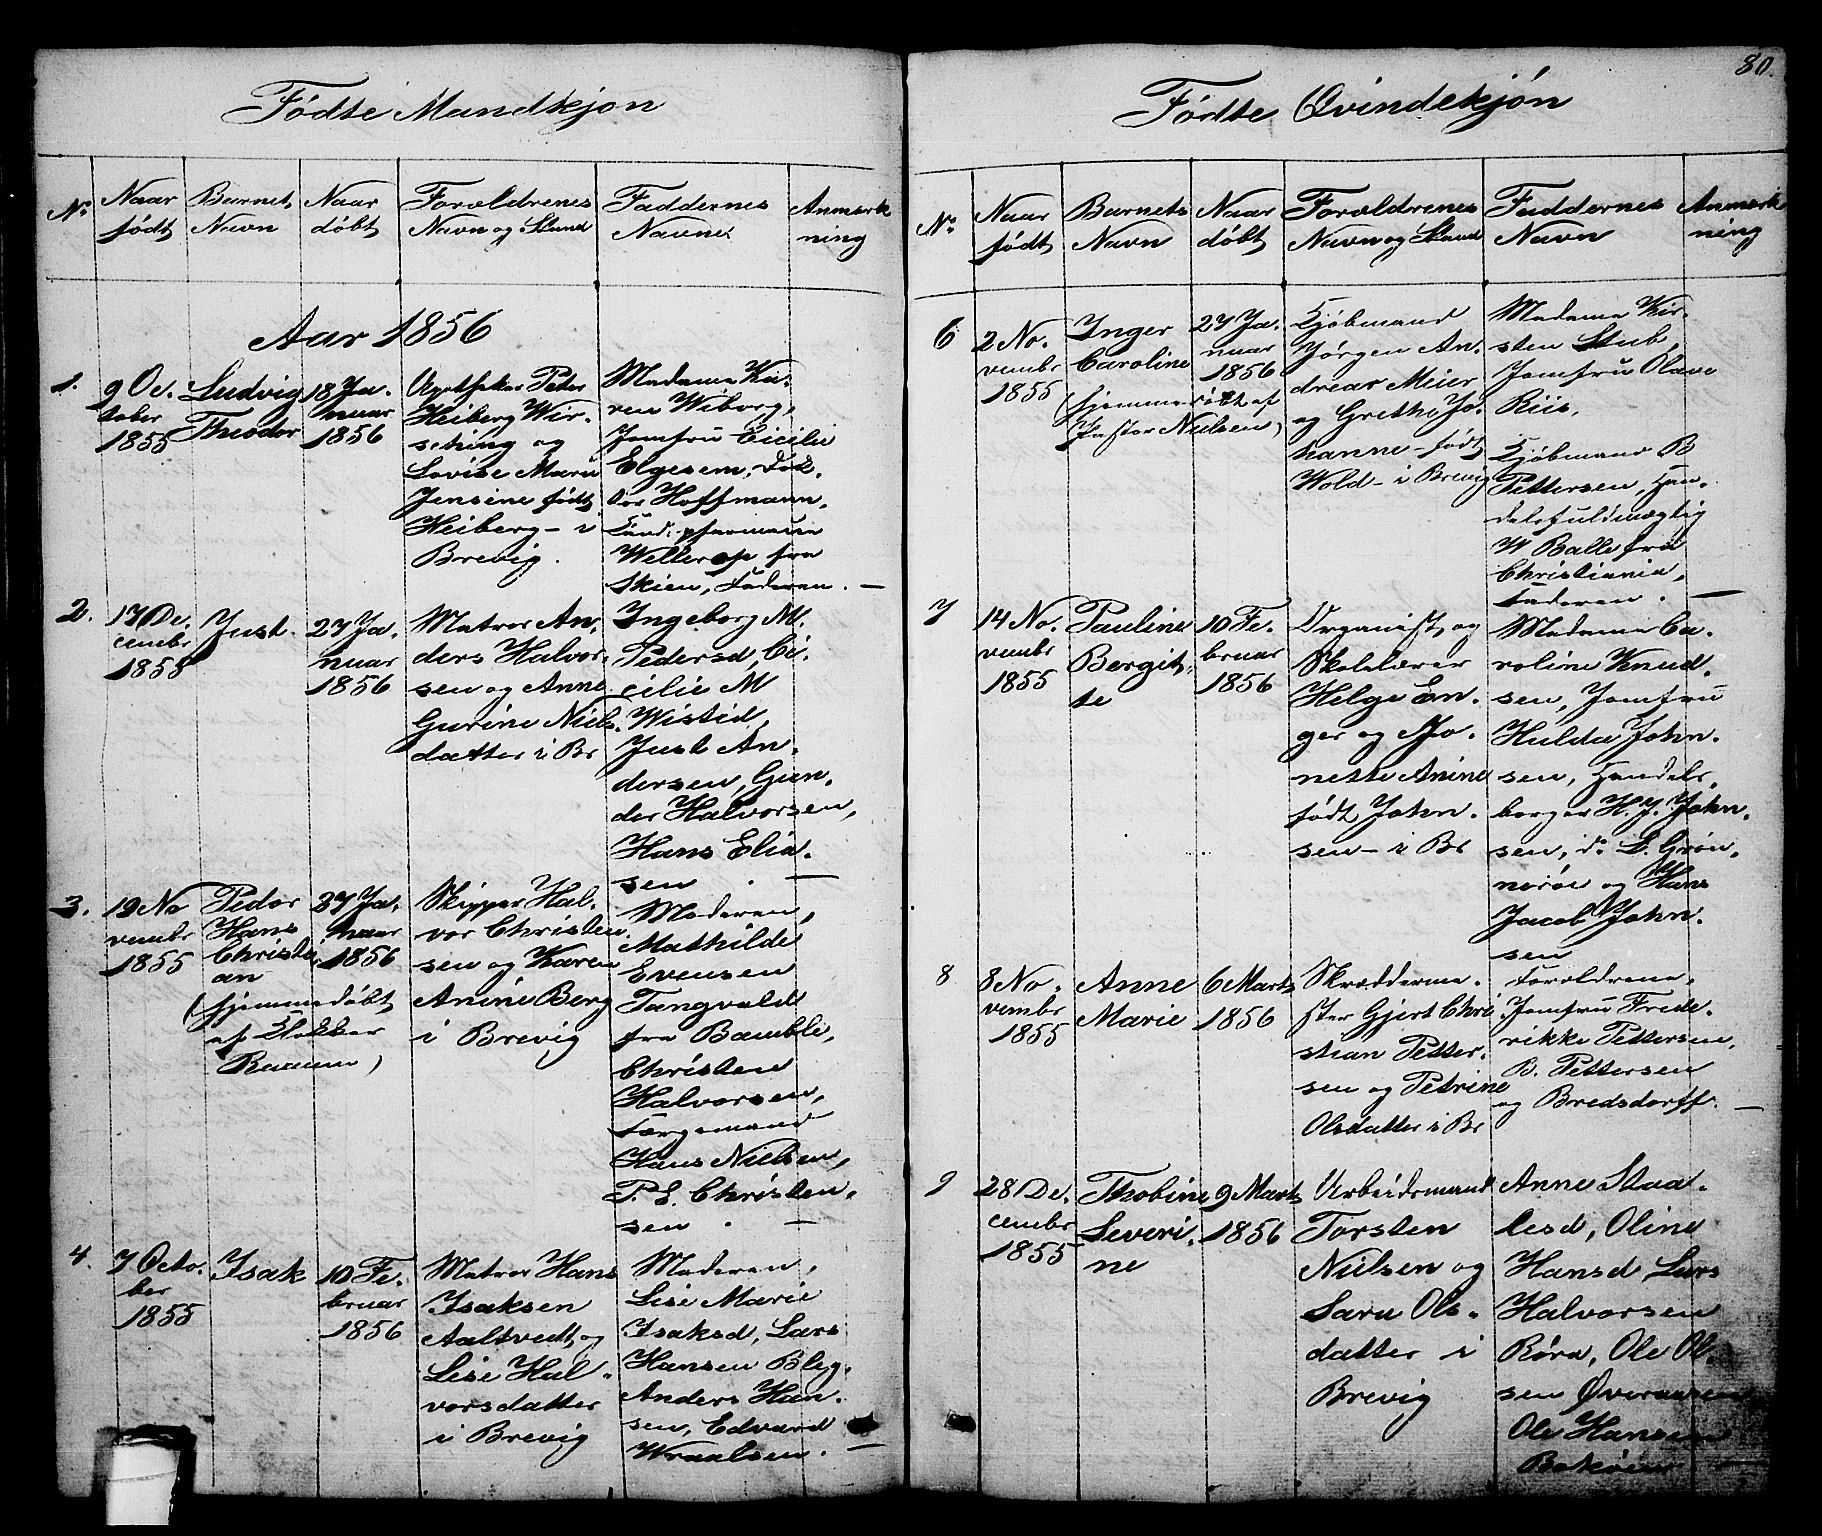 Fødte Mandkjøn
No
Naar født
Barnets Navn
Naar døbt
Forældrenes Navn og Stand
Faddernes Navne
Anmærkning
Aar 1856
1.
9 Oc.
tober
1855
Ludvig
Theodor
18 Ja.
nuar
1856
Apotheker Peter
Heiberg Wir.
sching og
Lovise Marie
Jensine født
Heiberg - i
Brevig.
Madame Ka.
ren Wiborg,
Jomfru Cicilie
Elgesem, Dok.
tor Hoffmann,
Cand: pharmacia
Wellerop fra
Skien, Faderen. -
2.
17 De.
cembr
1855
Just.
27 Ja.
nuar
1856
Matros An.
ders Halvor.
sen og Anne
Gurine Niels.
datter i Br
Ingeborg M.
Pedersd, Ci.
cilie M
Wistid,
Just An.
dersen, Gun.
der Halvorsen,
Hans Elia.
sen . -
3.
19 No
vembr
1855
Peder
Hans
Christi
an
(hjemmedøbt
af Klokker
Raaum)
27 Ja.
nuar
1856
Skipper Hal.
vor Christen.
sen og Karen
Anine Berg
i Brevig
Moderen,
Mathilde
Evensen
Tangvald
fra Bamble,
Christen
Halvorsen,
Færgemand
Hans Nielsen,
P. E. Christen.
sen . -
4.
7 Octo.
ber
1855
Isak
10 Fe.
bruar
1856
Matros Hans
Isaksen
Aaltvedt, og
Lise Hal.
vorsdatter
i Brevig
Moderen,
Lise Marie
Isaksd, Lars
Hansen Bleg.
Anders Han.
sen, Edvard
Wraalsen. -
80.
Fødte Qvindekjøn
No
Naar født
Barnets Navn
Naar døbt
Forældrenes Navn og Stand
Faddernes Navn
Anmærkning
6
2 No.
vembr
1855
Inger
Caroline
(hjemmedøbt af
Pastor Nielsen)
27 Ja.
nuar
1856
Kjøbmand
Jørgen An.
dreas Meier
og Grethe Jo.
hanne - født
Wold - i Brevig
Madame Kir.
sten Stub,
Jomfru Olave
Riis,
Kjøbmand B
Pettersen, Han.
delsfuldmægtig
W Balle fra
Christiania,
Faderen. -
7
14 No.
vembr
1855
Pauline
Bergit.
te
10 Fe.
bruar
1856
Organist og
Skolelærer
Helge En.
ger og Jo.
nette Anine
født John.
sen - i Br
Madame Ca.
roline Knud.
sen, Jomfru
Hulda John.
sen, Handels.
borger H. J. John.
sen, do L. Grøn.
nerøe og Hans
Jacob John.
sen
8
8 No.
vembr
1855
Anne
Marie
6 Marts
1856
Skrædderme.
ster Gjert Chri
stian Petter.
sen og Petrine
Olsdatter i Br
Forældrene,
Jomfru Frede.
rikke Pettersen,
B. Pettersen
og Bredsdorff. -
9
28 De.
cembr
1855
Thobine
Severi.
ne
9 Marts
1856
Arbeidsmand
Torsten
Nielsen og
Sara Ols.
datter i
Brevig
Anne Staa.
lesd, Oline
Hansd, Lars
Halvorsen
Røra, Ole Ol.
sen Øveraasen
Ole Hansen